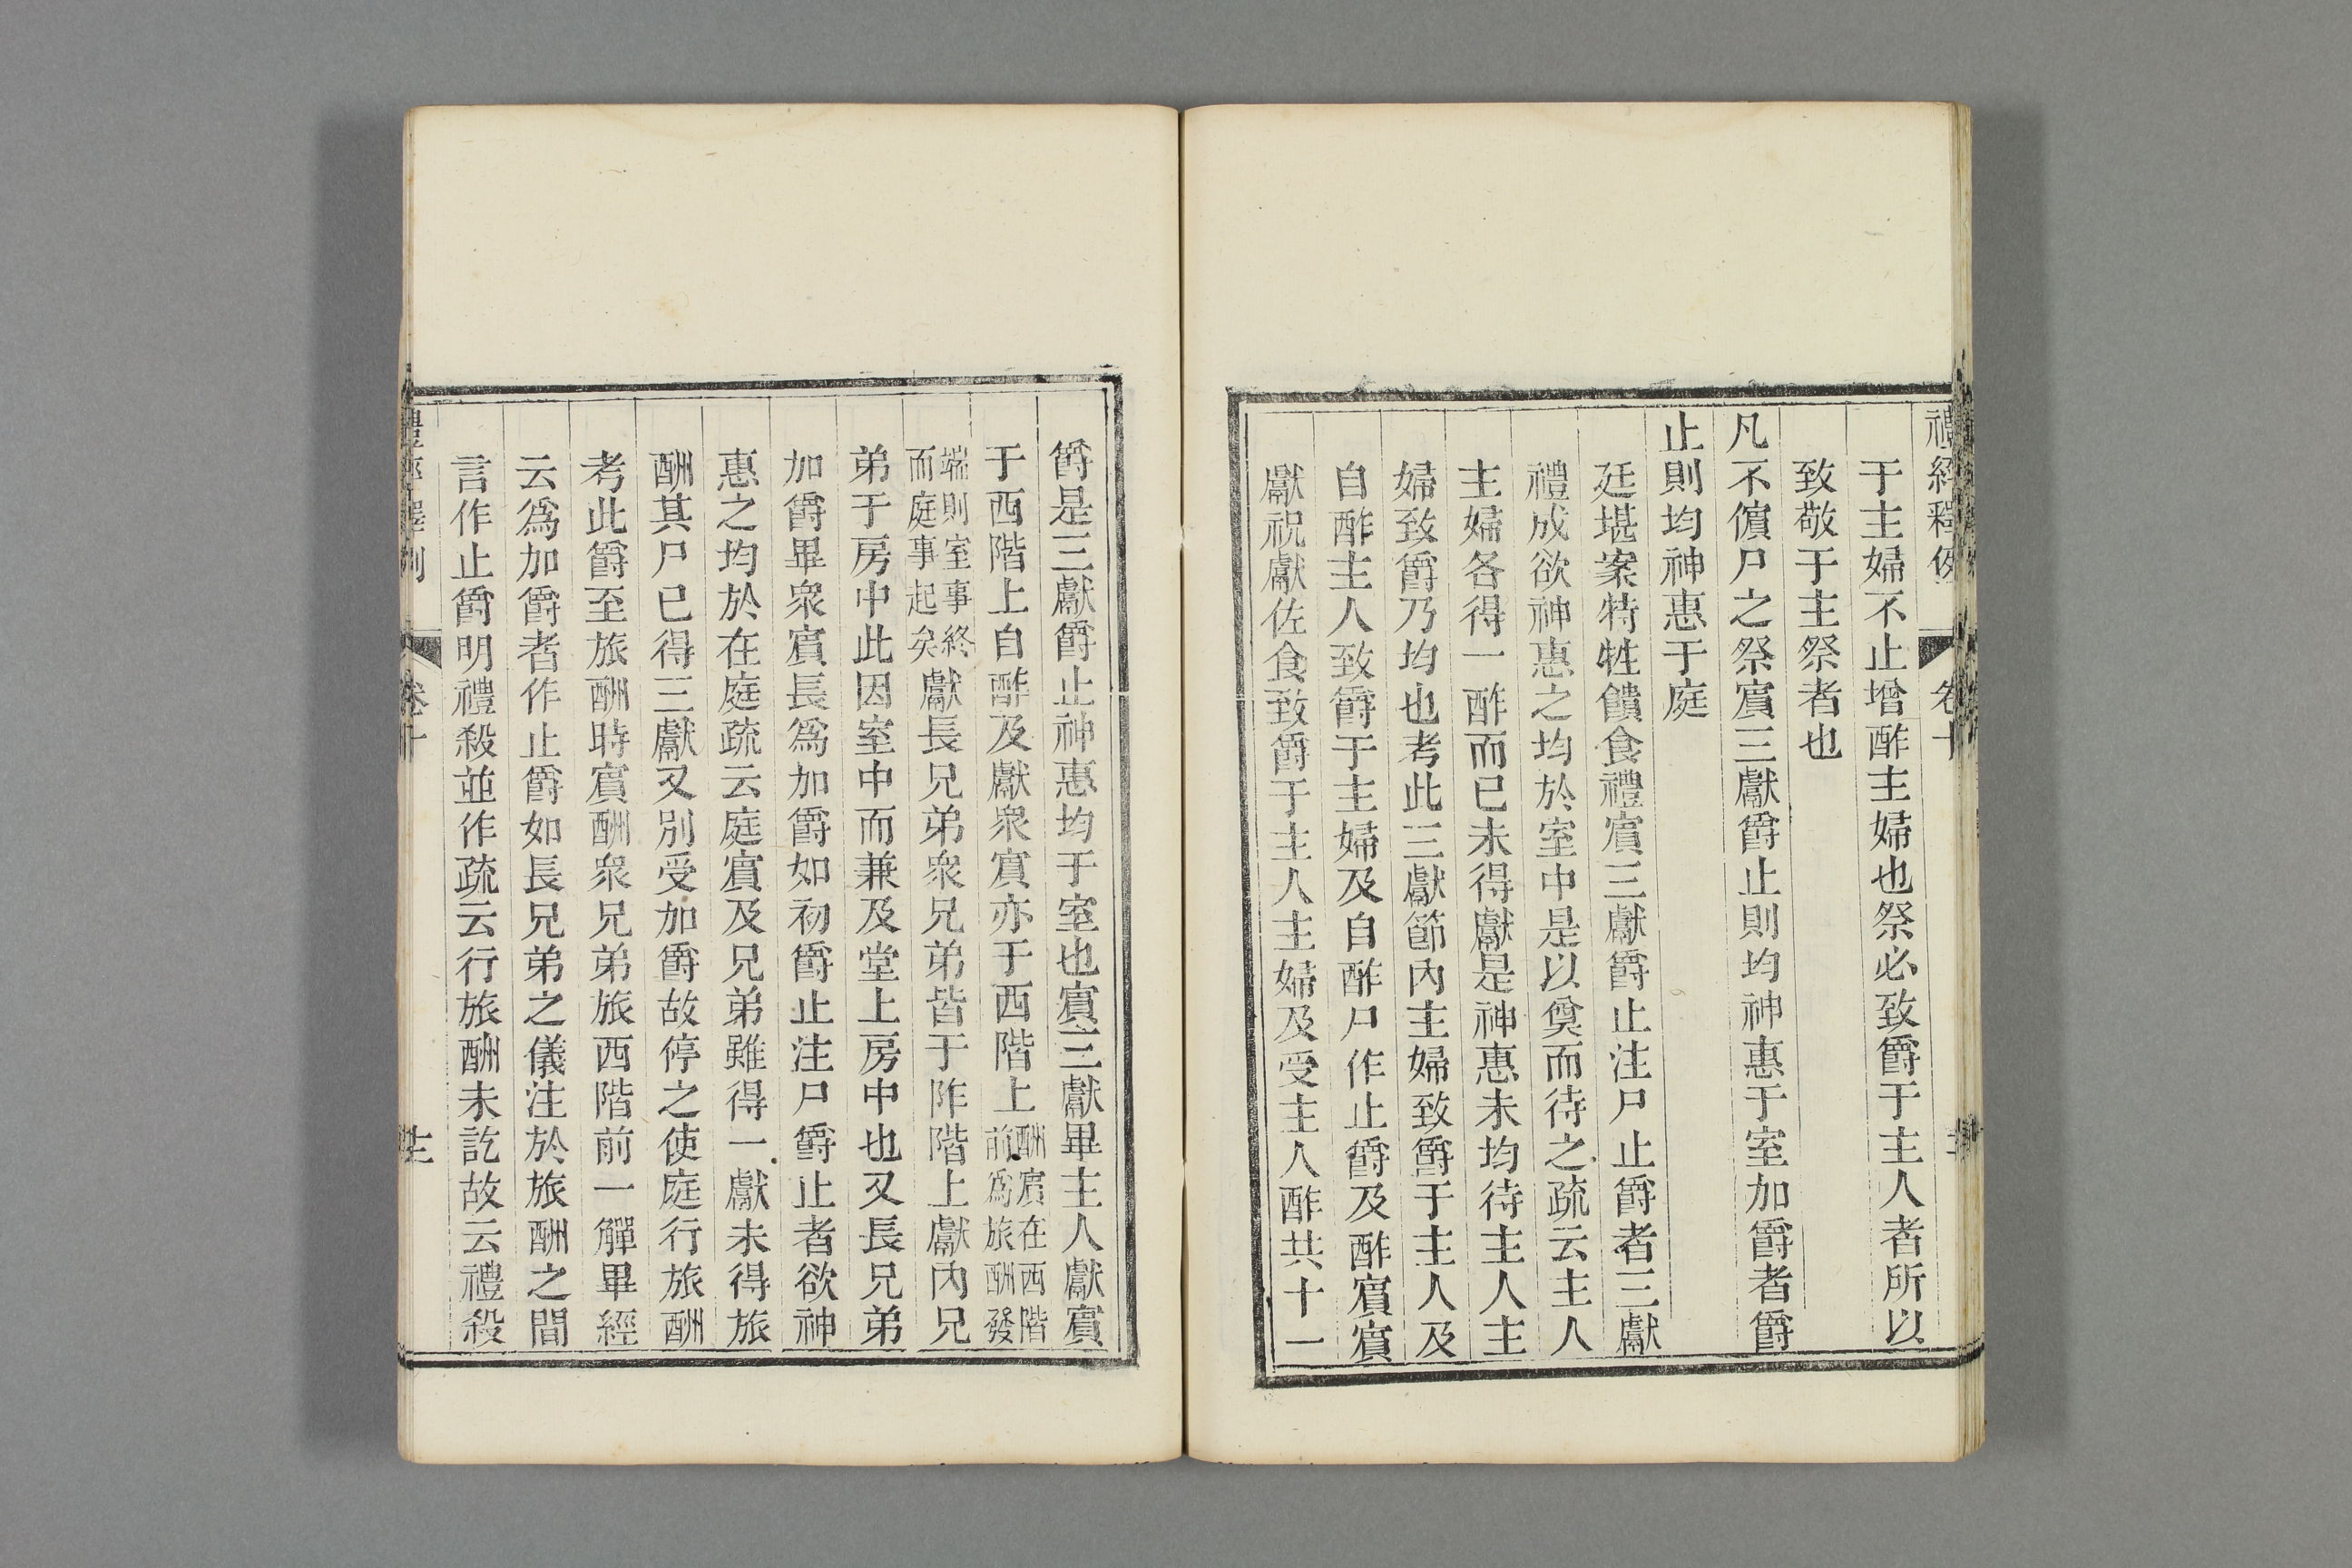 禮經釋例 卷十
于主婦不止增酢主婦也祭必致爵于主人者所以
致敬于主祭者也
凡不儐尸之祭賔三獻爵止則均神惠于室加爵者爵
止則均神惠于庭
廷堪案特牲饋食禮賔三獻爵止注尸止爵者三獻
禮成欲神惠之均於室中是以奠而待之疏云主人
主婦各得一酢而已未得獻是神惠未均待主人主
婦致爵乃均也考此三獻節內主婦致爵于主人及
自酢主人致爵于主婦及自酢尸作止爵及酢賔賔
獻祝獻佐食致爵于主人主婦及受主人酢共十一
爵是三獻爵止神惠均于室也賔三獻畢主人獻賔
于西階上自酢及獻衆賔亦于西階上酬賔在西階前爲旅酬發
端則室事終而庭事起矣獻長兄弟衆兄弟皆于阼階上獻內兄
弟于房中此因室中而兼及堂上房中也又長兄弟
加爵畢衆賔長爲加爵如初爵止注尸爵止者欲神
惠之均於在庭疏云庭賔及兄弟雖得一獻未得旅
酬其尸已得三獻又別受加爵故停之使庭行旅酬
考此爵至旅酬時賔酬衆兄弟旅西階前一觶畢經
云爲加爵者作止爵如長兄弟之儀注於旅酬之間
言作止爵明禮殺並作疏云行旅酬未訖故云禮殺
禮經釋例 卷十